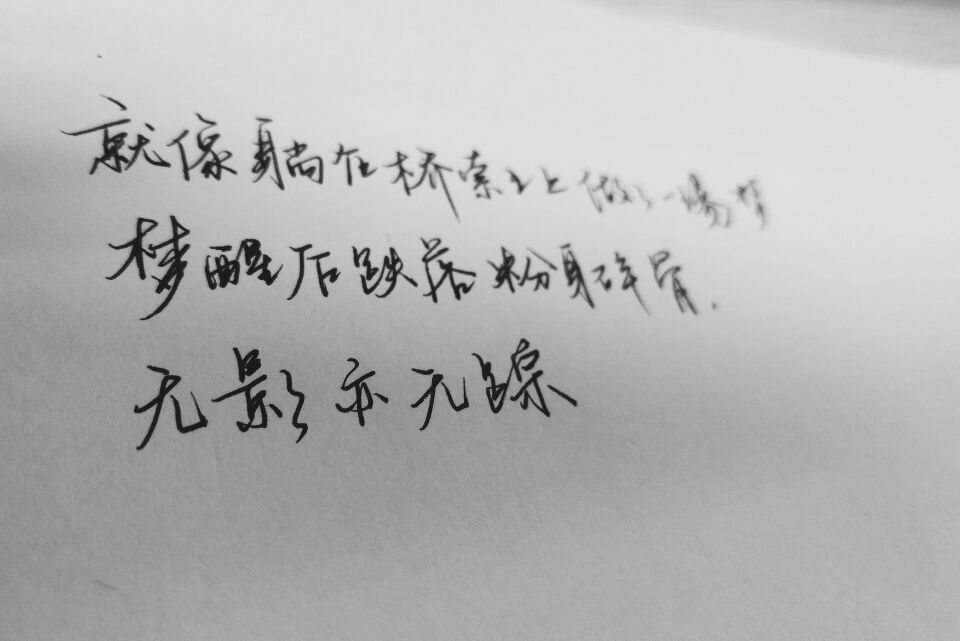 就像躺在桥索之上做了一场梦
梦醒后跌落粉身碎骨.
无影亦无踪